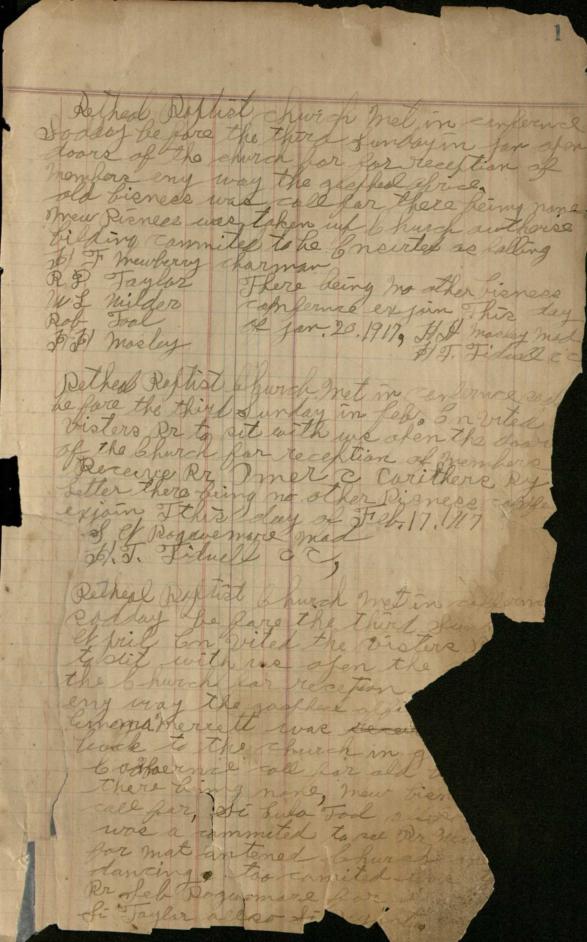 1
Betheal Baptist Church Met in conference
Sadday be fore the third Sunday in Jan open
doors of the church for for reception of
Members eny way the gosphed
old bisness was call for there being none
Mew Bisness was taken up Church authorise
bilding commited to be as falling
H F Mewberry charman
R P Taylor There being No other bisness
W L Milder conference exjoin This day
Rob Tool of Jan. 20. 1917, H H Mosley Mod
H H Mosley H T. Fidwell C C
Betheal Baptist Church Met in conference sad
be fore the third Sunday in Feb. En vited
Visters Br to sit with us open the door
of the Church for reception of Members
Receive Br Omer C Carithers By
Letter there being no other Bisness
exjoin This day of Feb. 17. 1917
Mod
H. T. Fidwell C C,
Betheal Baptist Church Met in
sadday be fore the third Sun
April En Vited the Visters
to sit with us open the
the Church for reception
eny way the
Emma Merrett was
back to the church in
call for old
there being none, Mew bisn
call for, Si Lula Tool
was a commited to see Br
for Mot antened Church
dancing. too comited
Br Seb
Si Taylor allso Si